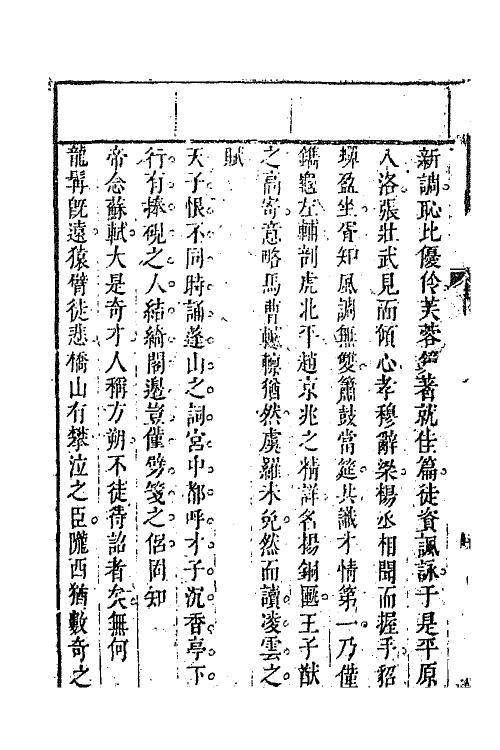 新調恥比優伶芙蓉鏡著就佳篇徒資諷詠于是平原
入洛張壯武見而傾心孝穆辭梁楊丞相聞而握手貂
蟬盈坐胥知風調無雙簫鼓當筵共識才情第一乃僅
鐫龜左輔剖虎北平趙京兆之精詳名揚銅匭王子猷
之高寄意略馬曹轗軻猶然虞羅未免然而讀凌雲之
賦
天子恨不同時誦蓬山之詞宮中都呼才子沉香亭下
行有捧硯之人結綺閣邊豈僅劈箋之侶固知
帝念蘇軾大是奇才人稱方朔不徒待詔者矣無何
龍髯旣遠猿臂徒悲橋山有攀泣之臣隴西猶數奇之